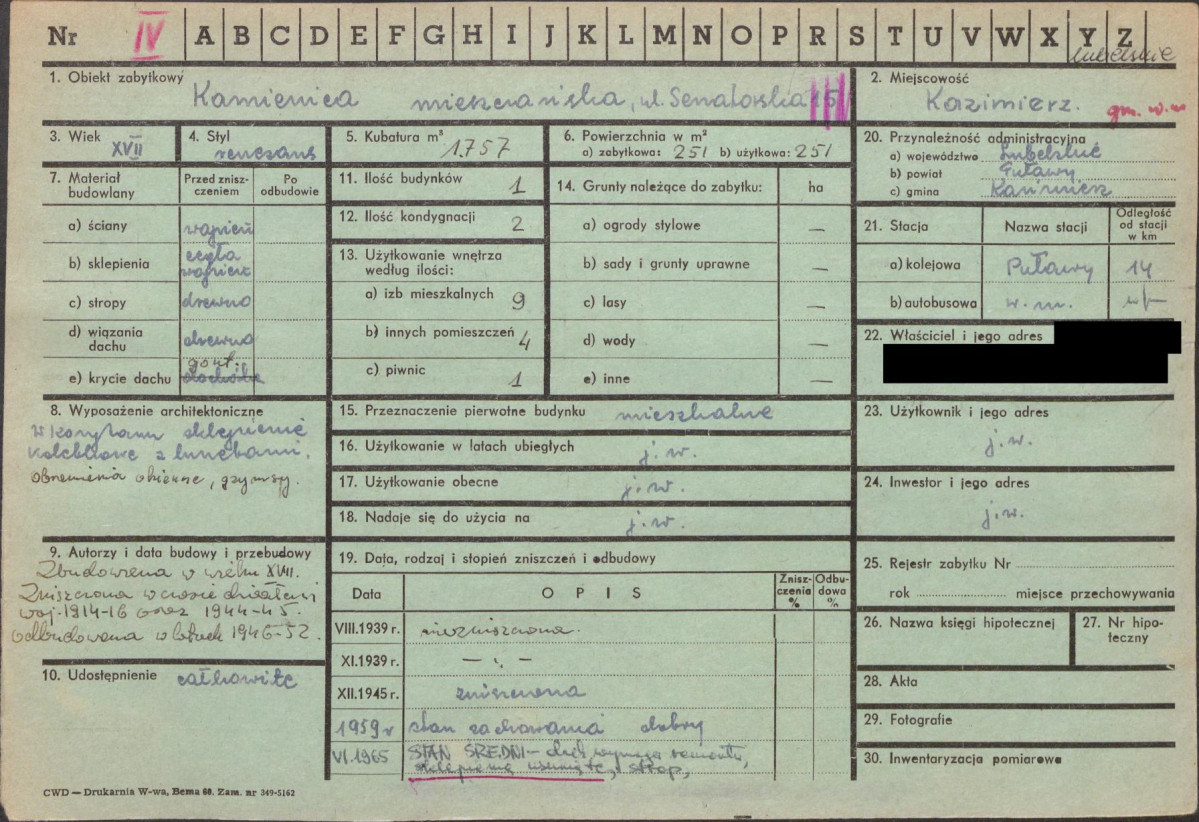 Nr IV A B C D E F G H I J K L M N O P R S T U V W X Y Z
lubelskie
1. Obiekt zabytkowy
Kamienica mieszczańska, ul. Senatorska 15
2. Miejscowość
Kazimierz.
gm. w.m
3. Wiek
XVII
4. Styl
renesans
5. Kubatura m³
1.757
6. Powierzchnia w m²
a) zabytkowa: 251 b) użytkowa: 251
20. Przynależność administracyjna
a) województwo Lubelskie
b) powiat Puławy
c) gmina Kazimierz
7. Materiał budowlany
Przed zniszczeniem
Po odbudowie
a) ściany wapień
b) sklepienia cegła
wapień
c) stropy drewno
d) wiązania dachu drewno
gont.
e) krycie dachu dachówka
11. Ilość budynków 1
12. Ilość kondygnacji 2
13. Użytkowanie wnętrza
według ilości:
a) izb mieszkalnych 9
b) innych pomieszczeń 4
c) piwnic 1
14. Grunty należące do zabytku: ha
a) ogrody stylowe —
b) sady i grunty uprawne —
c) lasy —
d) wody —
e) inne —
21. Stacja
Nazwa stacji
Odległość
od stacji
w km
a) kolejowa Puławy 14
b) autobusowa w.m.
22. Właściciel i jego adres
8. Wyposażenie architektoniczne
W korytarzu sklepienie
kolebkowe z lunetami.
obramienia okienne, gzymsy.
15. Przeznaczenie pierwotne budynku mieszkalne
16. Użytkowanie w latach ubiegłych j.w.
17. Użytkowanie obecne j.w.
18. Nadaje się do użycia na j.w.
23. Użytkownik i jego adres
j.w.
24. Inwestor i jego adres
j.w.
9. Autorzy i data budowy i przebudowy
Zbudowana w wieku XVII.
Zniszczona w czasie działań
woj. 1914-16 oraz 1944-45.
odbudowana w latach 1946-52.
10. Udostępnienie całkowite
19. Data, rodzaj i stopień zniszczeń i odbudowy
Data
OPIS
Zniszczenia %
Odbudowa %
VIII.1939 r. niezniszczona.
XI.1939 r. — „ —
XII.1945 r. zniszczona
1959 r stan zachowania dobry
VI.1965 STAN ŚREDNI – dach wymaga remontu,
sklepienie usunięte, strop,
25. Rejestr zabytku Nr
rok miejsce przechowywania
26. Nazwa księgi hipotecznej
27. Nr hipoteczny
28. Akta
29. Fotografie
30. Inwentaryzacja pomiarowa
CWD — Drukarnia W-wa, Bema 60. Zam. nr 349-5162